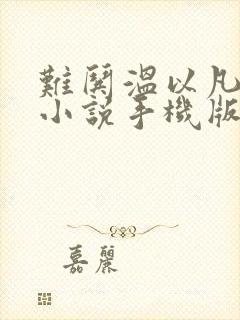 難鬨溫以凡
小說手機版
嘉麗